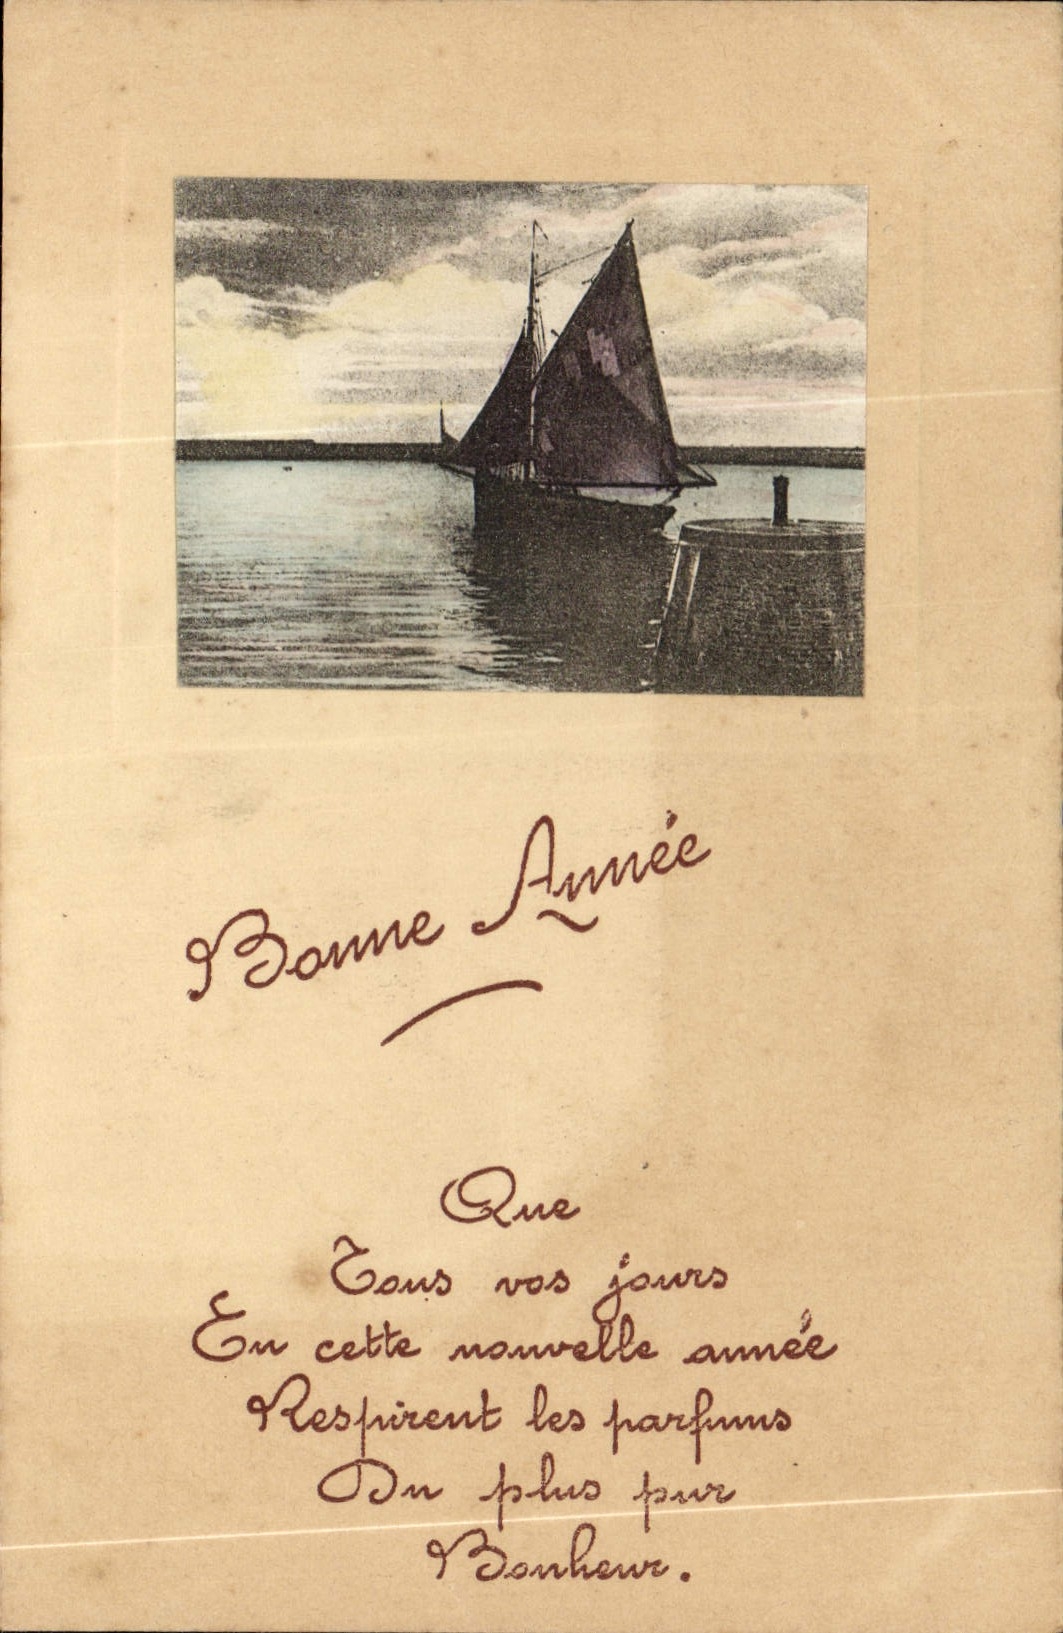 Bonne Année
Que
Tous vos jours
En cette nouvelle année
Respirent les parfums
Du plus pur
Bonheur.